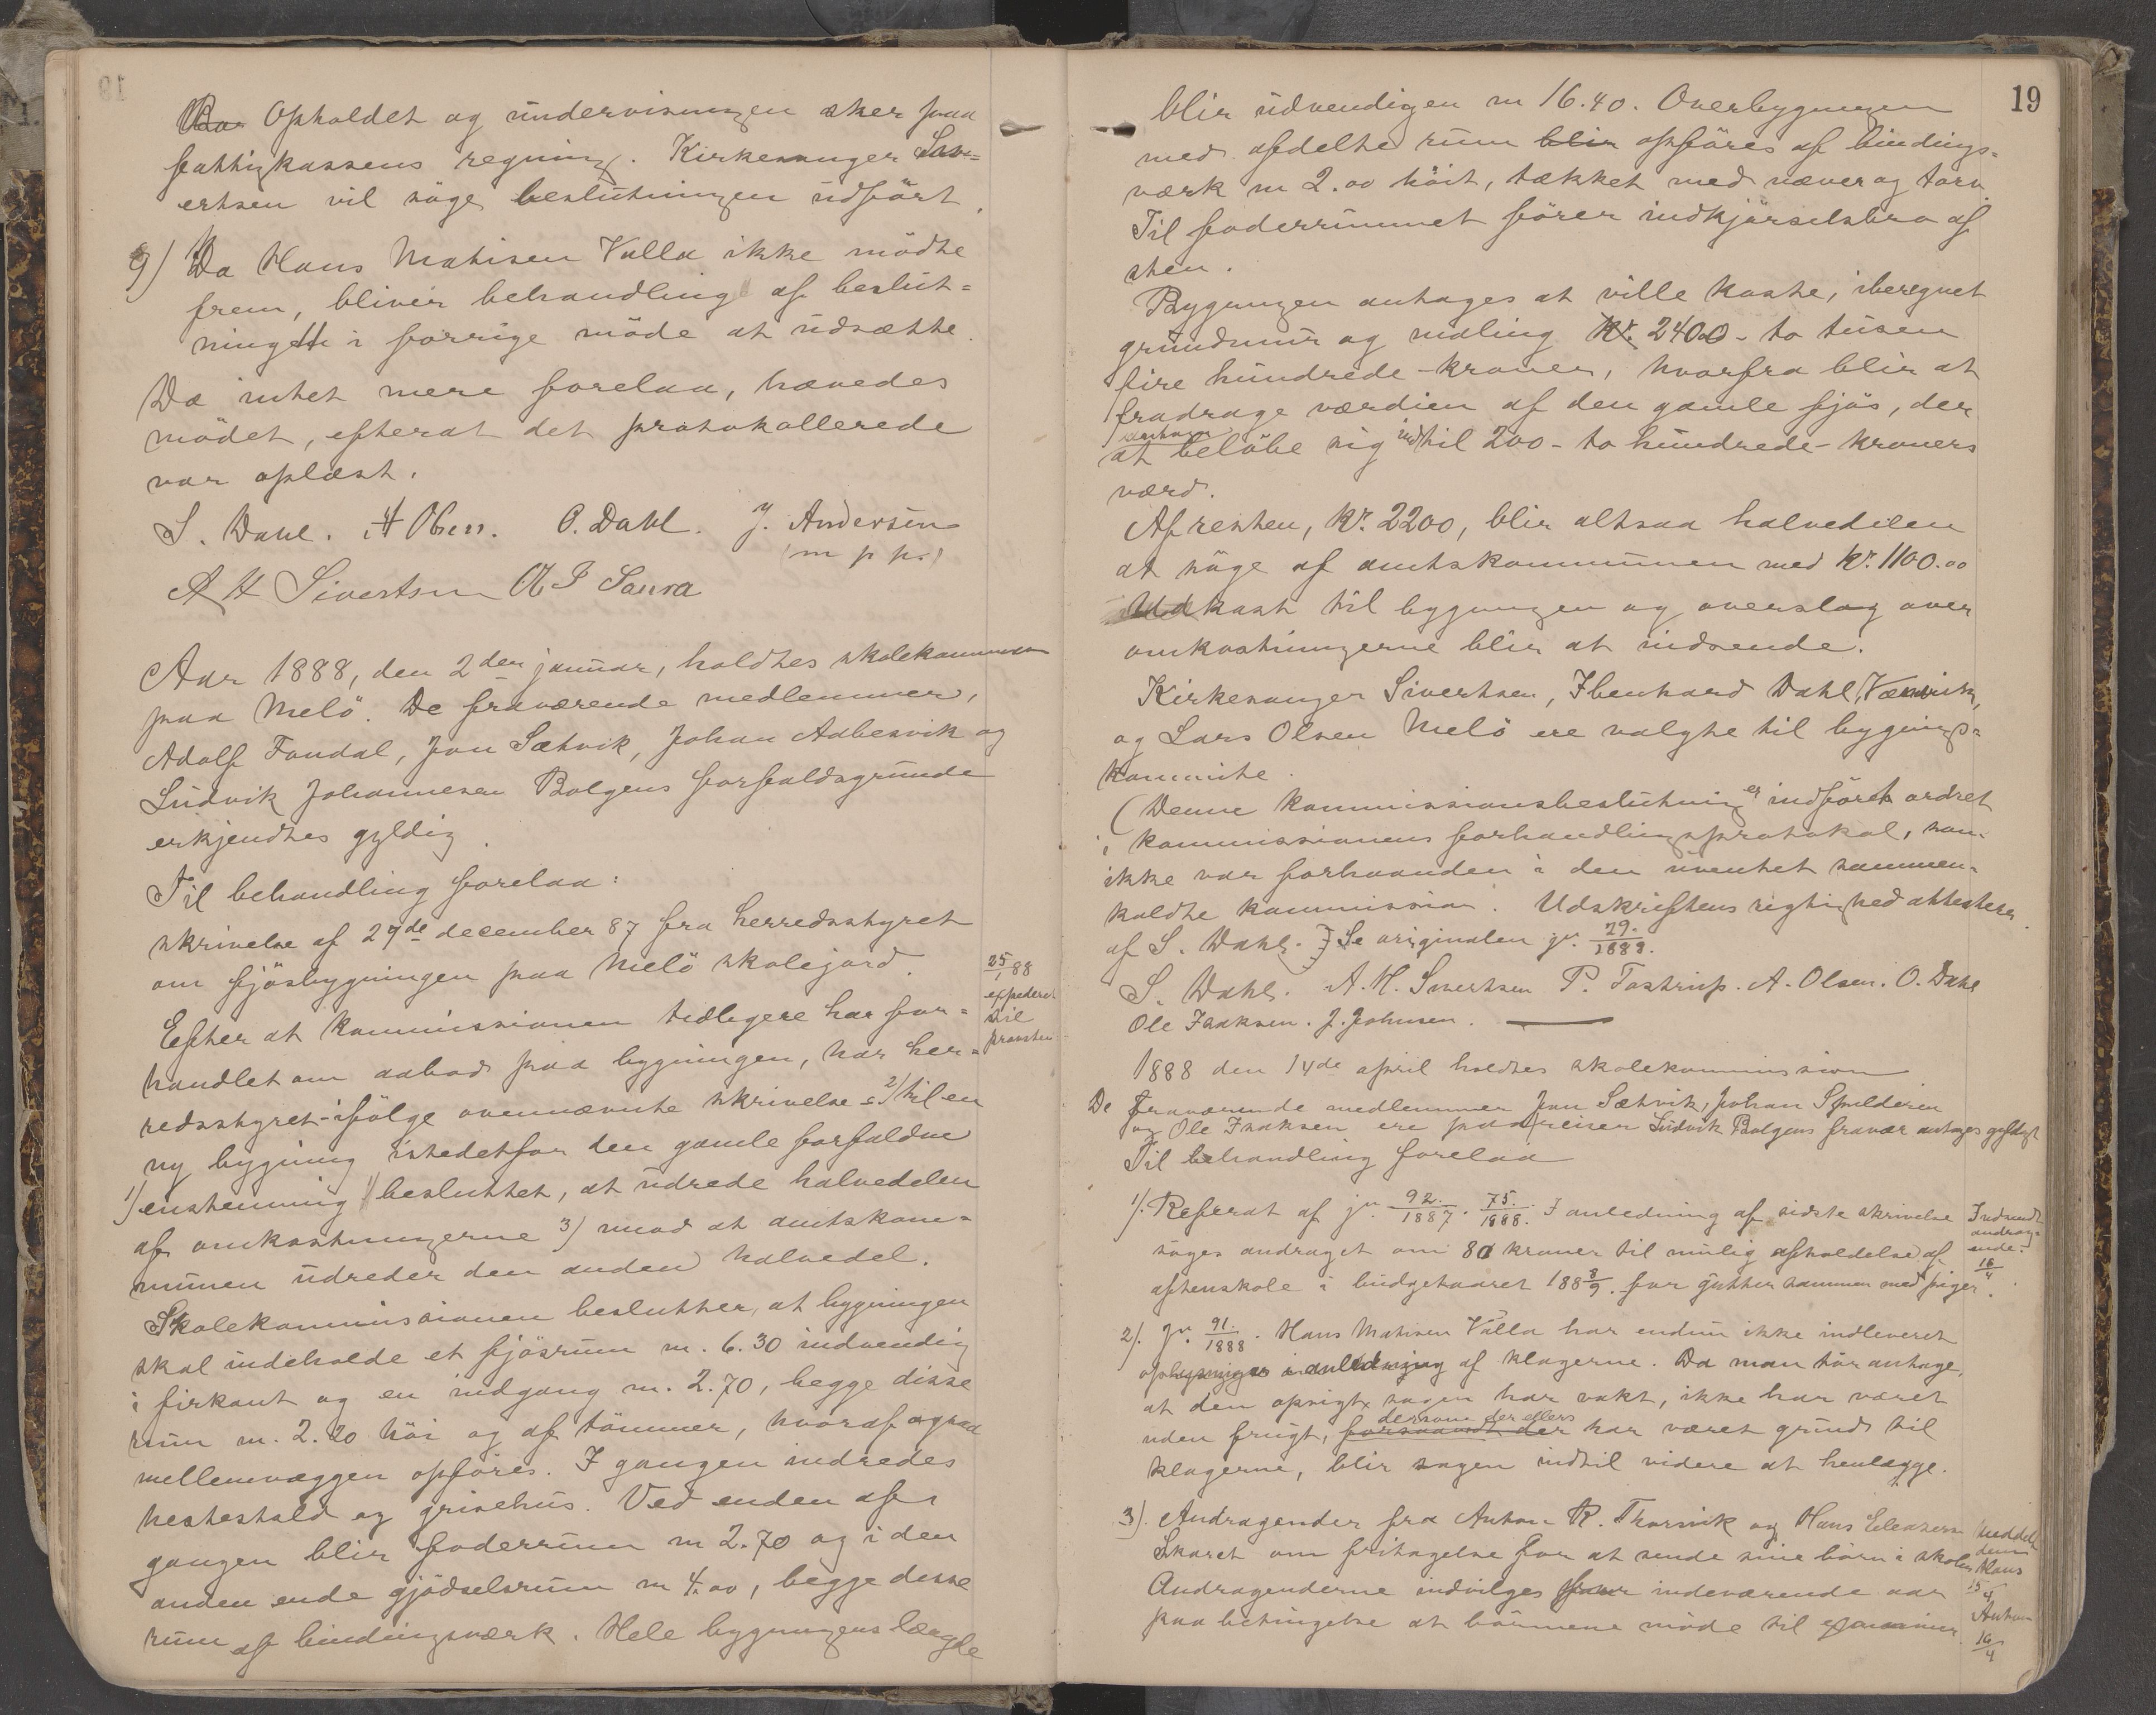 Opholdet og undervisningen sker paa
fattigkassens regning. Kirkesanger Siv-
ertsen vil söge beslutningen udfört.
9) Da Hans Mathisen Valla ikke mödte
frem, bliver behandling af beslut-
ningen i forrige möde at udsætte.
Da intet mere forelaa, hævedes
mödet, efterat det protokollerede
var oplæst.
S. Dahl. A Olsen. O. Dahl. J. Andersen
(m p p.)
A H Sivertsen
Aar 1888, den 2den januar, holdtes skolekommission
paa Melö. De fraværende medlemmer,
Adolf Fondal, Jon Sætvik, Johan Aabesvik og
Ludvik Johannesen Bolgens forfaldsgrunde
erkjendtes gyldig.
Til behandling forelaa:
skrivelse af 29de december 87 fra herredsstyret
om fjösbygningen paa Melö skolejord.
25/1 88
expederet
til
provsten
Efter at kommissionen tidligere har for-
handlet om aabod paa bygningen, har her-
redsstyret ifölge ovennævnte skrivelse 2) til en
ny bygning istedetfor den gamle forfaldne
1) enstemmig besluttet, at udrede halvedelen
af omkostningerne 3) mod at amtskom-
munen udreder den anden halvedel.
Skolekommissionen beslutter, at bygningen
skal indeholde et fjösrum m. 6.30 indvendig
i firkant og en indgang m. 2.70, begge disse
rum m. 2.20 höi og af tömmer, hvoraf ogsaa
mellemvæggen opföres. I gangen indredes
hestestald og grisehus. Ved enden af
gangen blir foderrum m 2.70 og i den
anden ende gjödselsrum m 4.00, begge disse
rum af bindingsværk. Hele bygningens længde
19
blir udvendigen m 16.40. Overbygningen
med afdelte rum blir opföres af bindings-
værk m 2.00 höit, tækket med næver og torv
Til foderrummet förer indkjörselsbro af
sten.
Bygningen antages at ville koste, iberegnet
grundmur og maling kr. 2400 - to tusen
fire hundrede - kroner, hvorfra blir at
fradrage værdien af den gamle fjös, der
antages
at belöbe sig ind til 200 - to hundrede - kroners
værd.
Af resten, kr. 2200, blir altsaa halvedelen
at söge af amtskommunen med kr. 1100.00
Udkast til bygningen og overslag over
omkostningerne blir at indsende.
Kirkesanger Sivertsen, Ibenhard Dahl, Værnvik,
og Lars Olsen Melö ere valgte til bygnings-
kommite.
(Denne kommissionsbeslutning er indfört ordret
i kommissionens forhandlingsprotokol, som
ikke var forhaanden i den uventet sammen-
kaldte kommission. Udskriftens rigtighed attesteres
af S. Dahl.) Se originalen jr. 29./1888.
S. Dahl. A. H. Sivertsen P. Tostrup. A. Olsen. O. Dahl
Ole Isaksen. J. Johnsen.
1888 den 14de april holdtes skolekommission
De fraværende medlemmer Jon Sætvik, Johan Spilderen
og Ole Isaksen ere paa reiser Ludvik Bolgens fravær antages gyldigt
Til behandling forelaa
1). Referat af jr. 92./1887. 75./1888. I anledning af sidste skrivelse
söges andraget om 80 kroner til mulig afholdelse af
aftenskole i budgetaaret 188 8/9. for gutter sammen med piger.
Indsendt
andrag-
ende.
16/4
2). Jr. 91./1888. Hans Mathisen Valla har endnu ikke indleveret
oplysninger i anledning af klagerne. Da man tör antage,
at den opsigt sagen har vakt, ikke har været
dersom der ellers
uden frugt, forsaavidt der har været grund til
klagerne, blir sagen indtil videre at henlægge.
3). Andragender fra Anton R. Thorsvik og Hans Eleasersen
Skaret om fritagelse for at sende sine börn i skolen
Andragenderne indvilges for indeværende aar
paa betingelse at börnene möde til examina
Meddelt
dem
Hans
15/4
Anton
16/4